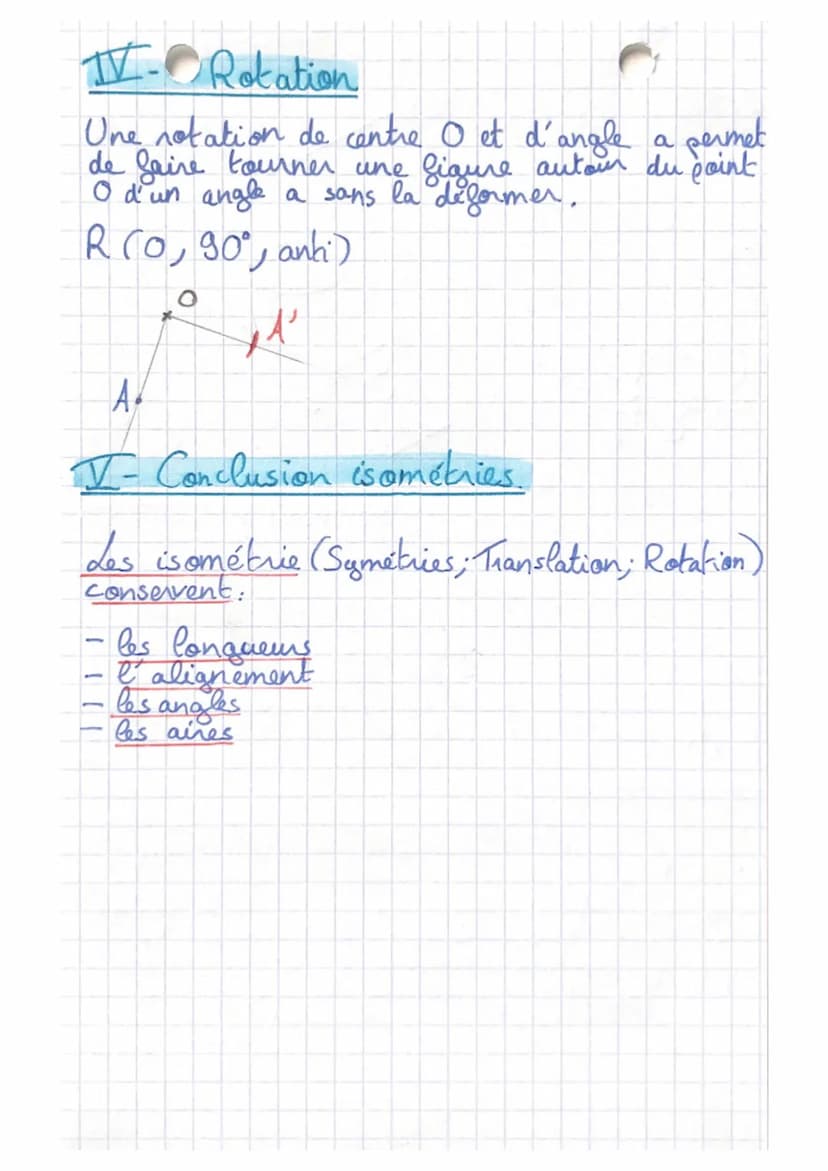 IV- Rotation
Une rotation de centre O et d'angle a permet
de faire tourner une figure autour du point
O d'un angle a sans la déformer.
R (O, 90°, anti)
O
A'
A
V- Conclusion isométries
Les isométrie (Symétries; Translation; Rotation)
conservent :
- les longueurs
- l'alignement
- les angles
- les aires